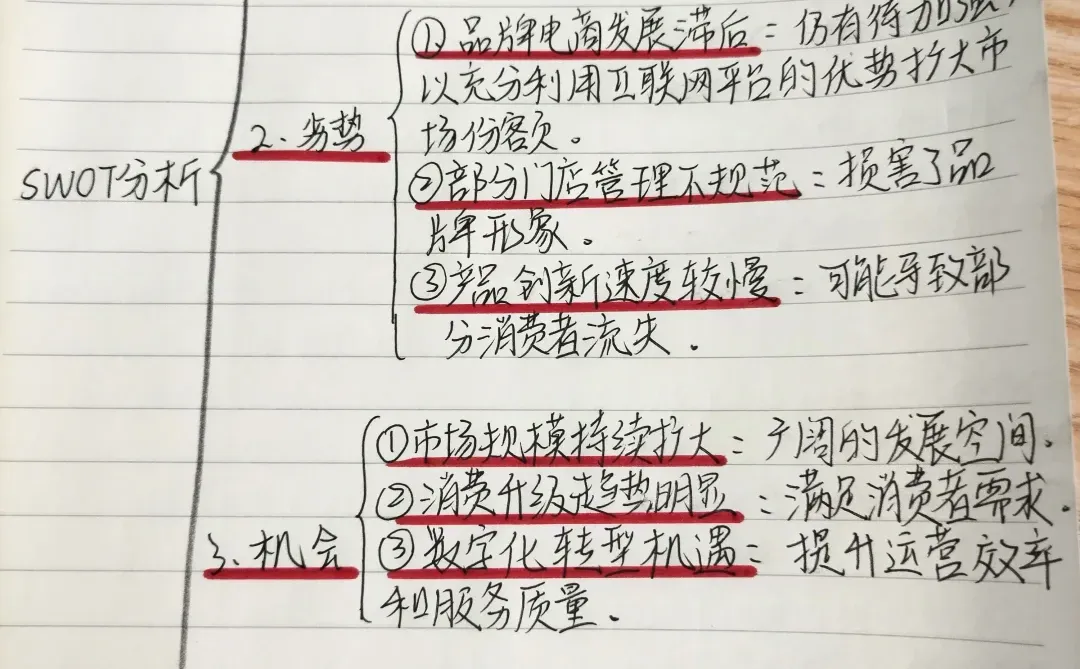 ①品牌电商发展滞后：仍有待加强，
以充分利用互联网平台的优势扩大市
场份额。
2、劣势
②部分门店管理不规范：损害了品
牌形象。
SWOT分析
③产品创新速度较慢：可能导致部
分消费者流失。
①市场规模持续扩大：广阔的发展空间.
②消费升级趋势明显：满足消费者需求.
3、机会
③数字化转型机遇：提升运营效率
和服务质量.